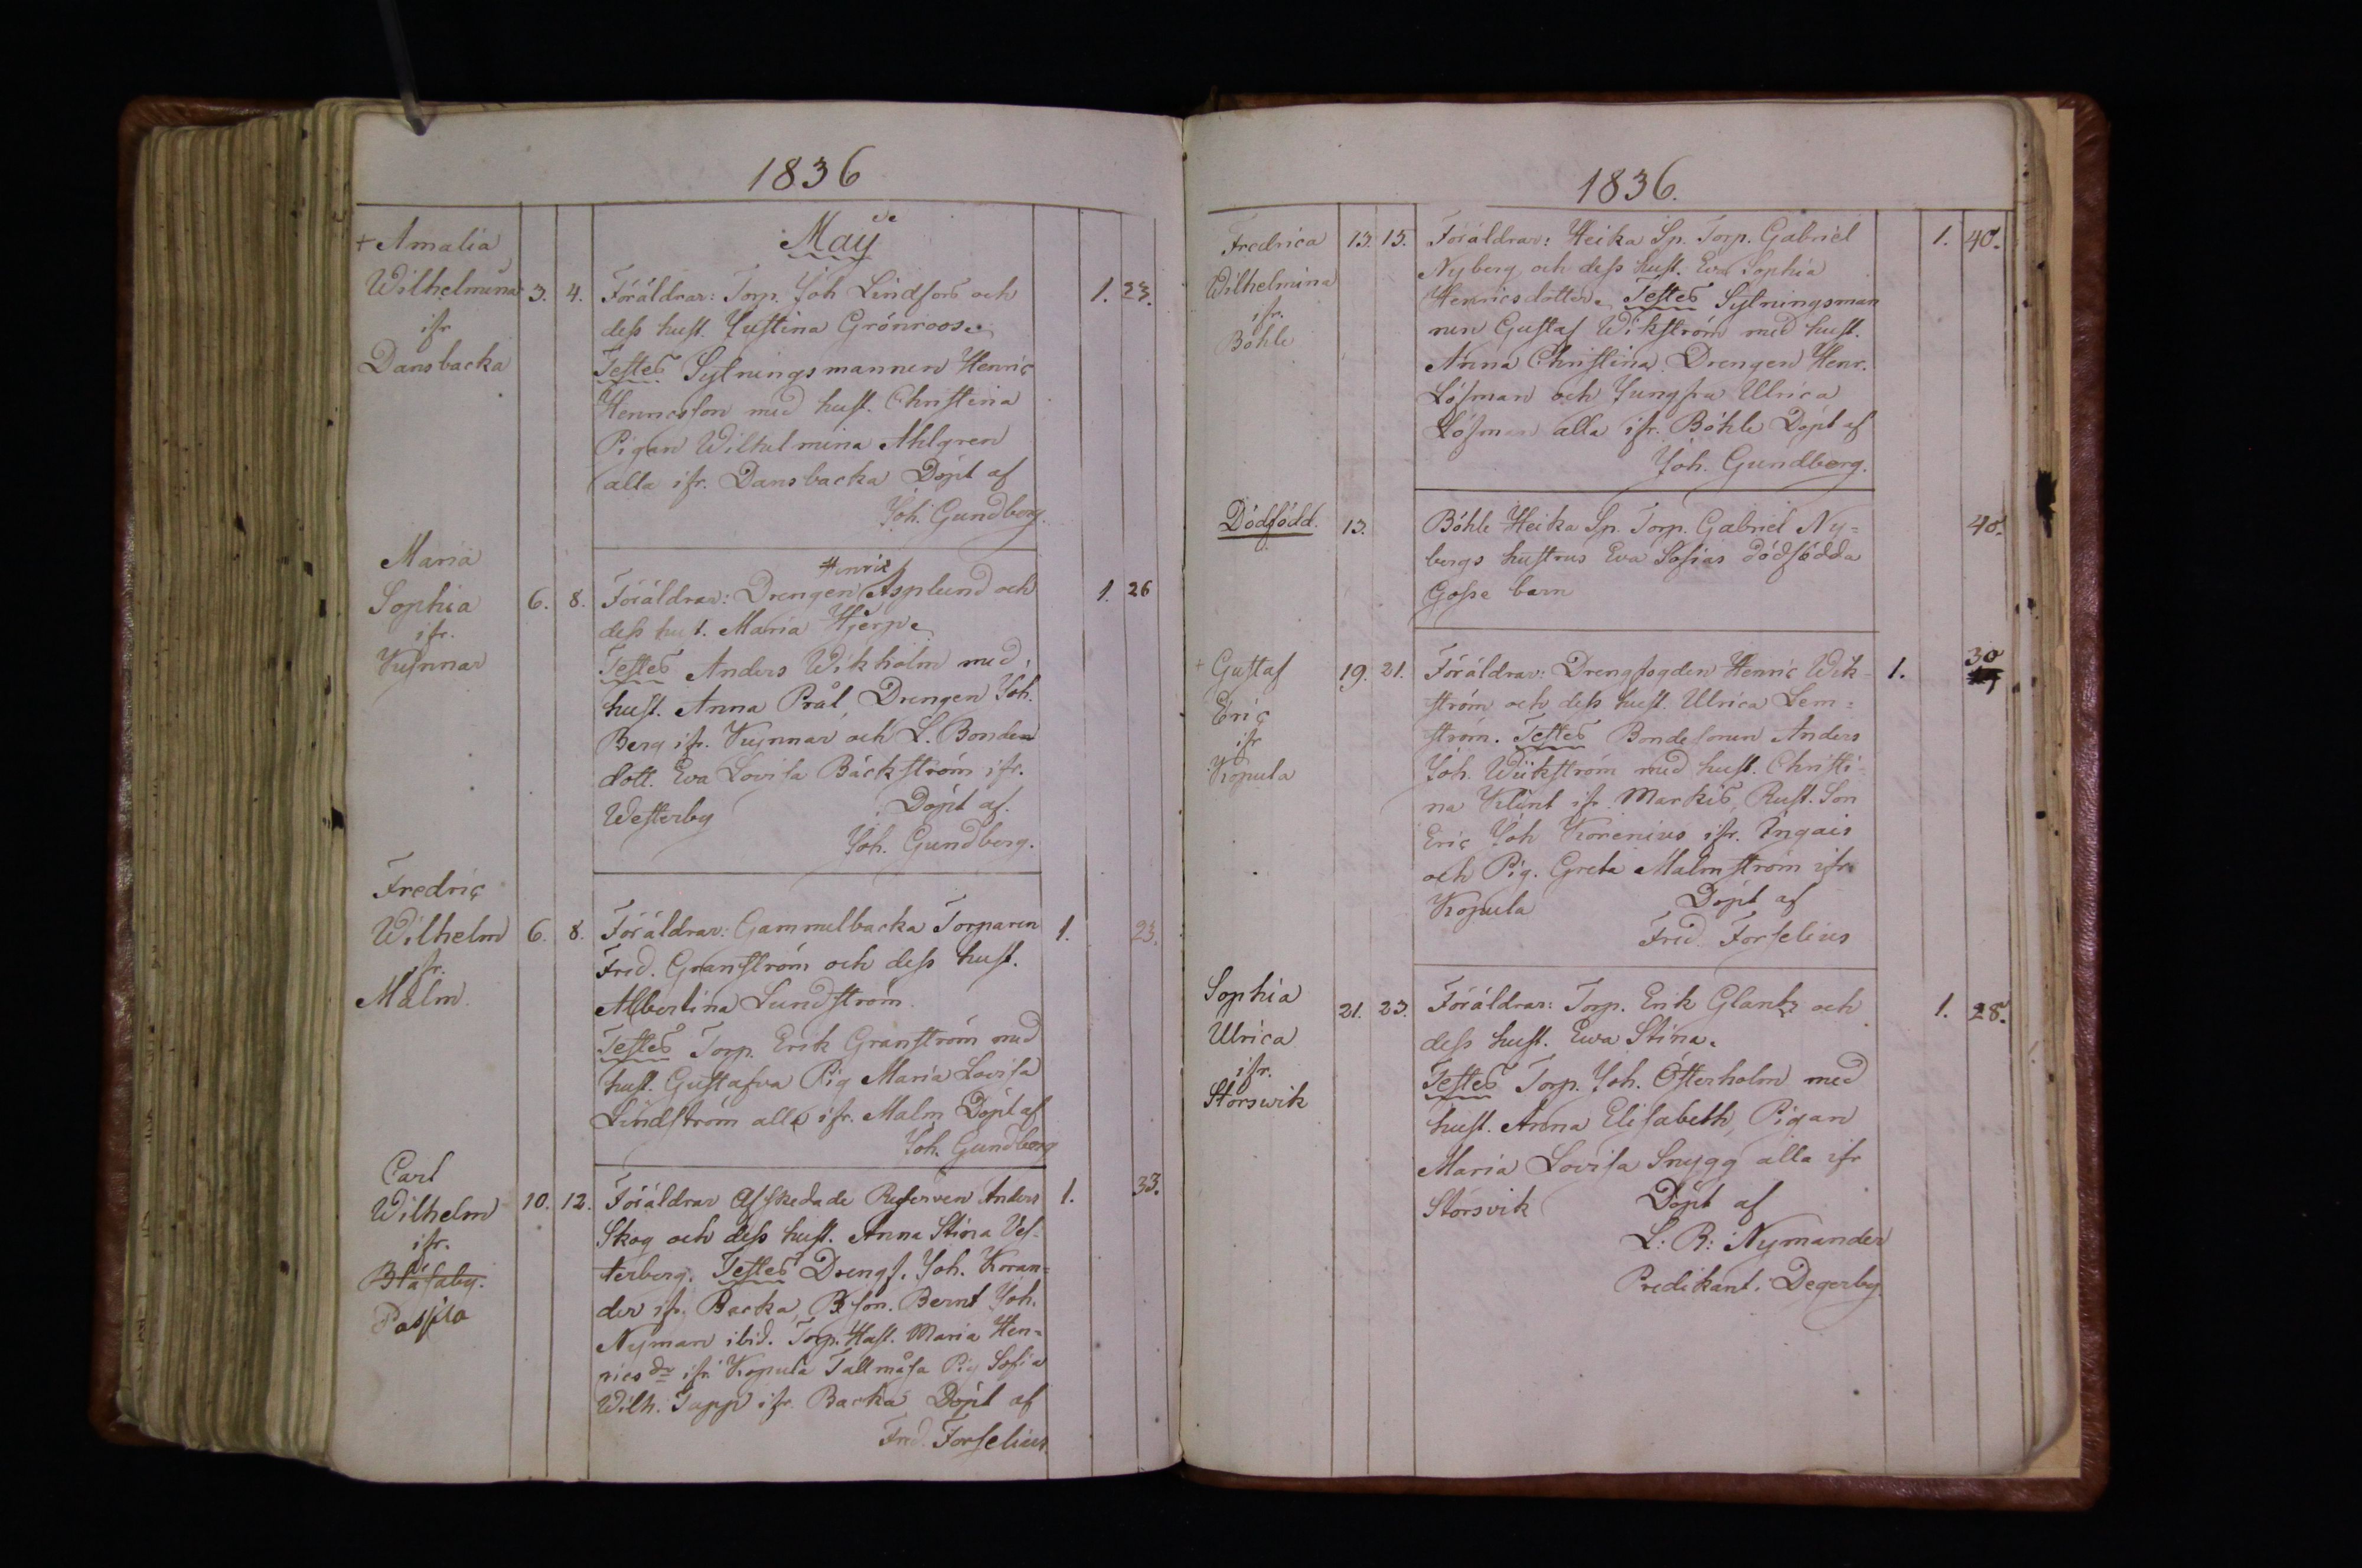 1836
May
+ Amalia
Wilhelmina 3. 4. Föräldrar: Torp. Joh Lindfors och 1. 23.
ifr dess hust. Justina Grönroos.
Dansbacka Testes Sytningsmannen Henric
Henricsson med hust. Christina
Pigan Wilhelmina Ahlgren
alla ifr. Dansbacka Döpt af
Joh. Gundberg.
Maria Henrik
Sophia 6. 8. Föräldrar: Drengen Asplund och 1. 26
ifr. dess hust. Maria Hjerpe
Testes Anders Wikholm med
hust. Anna Prål, Drengen Joh.
Berg ifr. och L. Bonde
dott. Eva Lovisa Bäckström ifr.
Westerby Döpt af.
Joh. Gundberg.
Fredric
Wilhelm 6. 8. Föräldrar: Gammelbacka Torparen 1. 23.
ifr. Fred. Granström och dess hust.
Malm. Albertina Lundström
Testes Torp. Erik Granström med
hust. Gustafva Pig Maria Lovisa
Lindström alla ifr. Malm Döpt af
Joh. Gundberg
Carl
Wilhelm 10. 12. Föräldrar Afskedade Reserven Anders 1. 33.
ifr. Skog och dess hust. Anna Stina Ves-
Blåfaby. terberg. Testes Drengf. Joh. Koran-
der ifr. Backa, B. son. Bernt Joh.
Nyman ibid. Torp. Hust. Maria Hen-
rics dr ifr Kopula Tallmåsa Pig Sofia
Wilh. Tapp ifr. Backa Döpt af
Fred. Forselius
1836.
Fredrica 13. 15. Föräldrar: Heika Sp. Torp. Gabriel 1. 40.
Wilhelmina Nyberg och dess hust. Eva Sophia
ifr. Henricsdotter. Testes Sytningsman
Böhle nen Gustaf Wikström med hust.
Anna Christina. Drengen Henr.
Löfman och Jungfru Ulrica
Löfman alla ifr. Böhle Döpt af
Joh. Gundberg.
Dödfödd. 13. Böhle Heika Sp. Torp. Gabriel Ny- 40.
bergs hustrus Eva Sofias dödfödda
Gosse barn
+ Gustaf 19. 21. Föräldrar: Drengfogden Henric Wik- 1. 30
Eric ström och dess hust. Ulrica Lem-
ifr ström. Testes Bondesonen Anders
Kopula Joh. Wiikström med hust. Christi-
na Klint ifr. Markis, Rust. Son
Eric Joh Korenius ifr. Ingais
och Pig. Greta Malmström ifr
Kopula Döpt af
Fred. Forselius
Sophia 21. 23. Föräldrar: Torp. Erik Glantz och 1. 28.
Ulrica dess hust. Ewa Stina.
ifr. Testes Torp. Joh. Österholm med
Storswik hust. Anna Elisabeth, Pigan
Maria Lovisa Snygg alla ifr
Storsvik Döpt af
L: R: Nymander
Predikant. i Degerby.